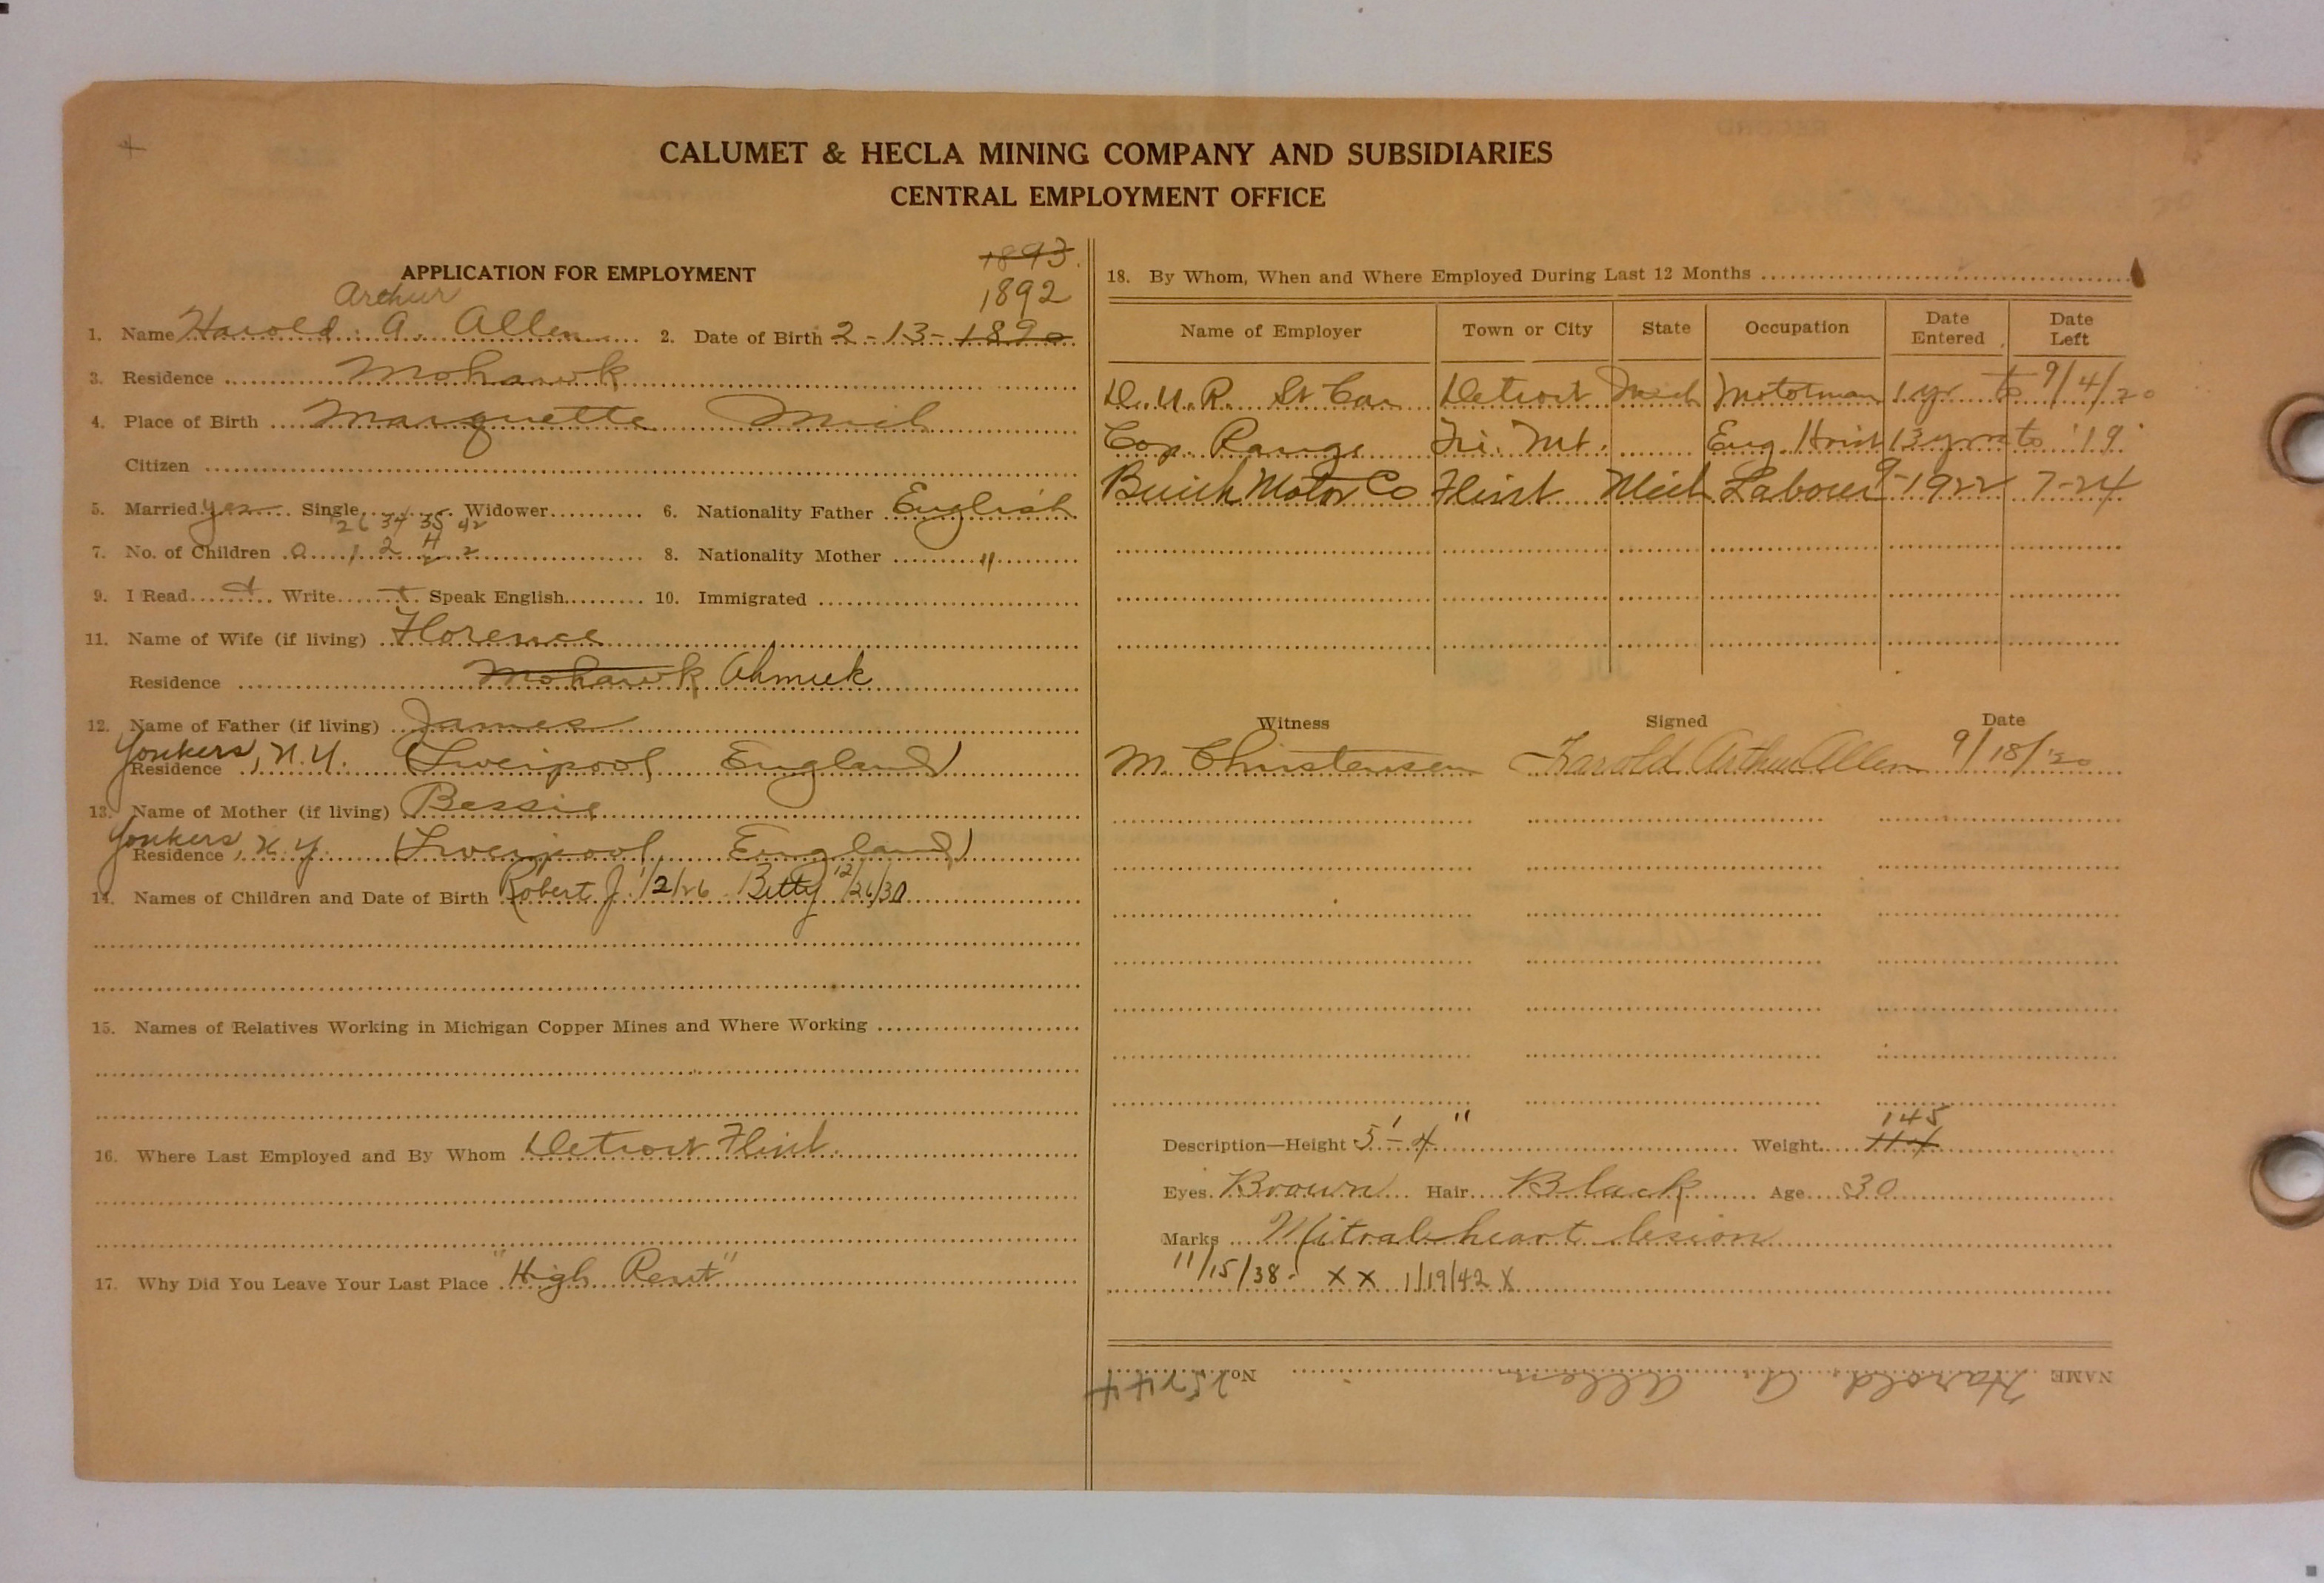 CALUMET & HECLA MINING COMPANY AND SUBSIDIARIES
CENTRAL EMPLOYMENT OFFICE
APPLICATION FOR EMPLOYMENT
1893
Arthur
1892
1. Name Harold A. Allen 2. Date of Birth 2-13-1890
3. Residence Mohawk
4. Place of Birth Marquette Mich
Citizen
5. Married yes Single Widower 6. Nationality Father English
26 34 35 42
7. No. of Children 0 1 2 4 2 2 8. Nationality Mother "
9. I Read Write Speak English 10. Immigrated
11. Name of Wife (if living) Florence
Residence Mohawk Ahmeek
12. Name of Father (if living) James
Residence Yonkers, N.Y. (Liverpool England)
13. Name of Mother (if living) Bessie
Residence Yonkers, N.Y. (Liverpool England)
14. Names of Children and Date of Birth Robert J. 1/2/26 Betty 12/26/30
15. Names of Relatives Working in Michigan Copper Mines and Where Working
16. Where Last Employed and By Whom Detroit Flint.
17. Why Did You Leave Your Last Place "High Rent"
18. By Whom, When and Where Employed During Last 12 Months
Name of Employer Town or City State Occupation Date Entered Date Left
D.U.R. St Car Detroit Mich Motorman 1 yr to 9/4/20
Cop. Range Tri. Mt. Eng. Hoist 13 yrs to '19
Buick Motor Co Flint Mich Labourer 9-1922 7-24
Witness Signed Date
M. Christensen Harold Arthur Allen 9/18/20
145
Description—Height 5'-4" Weight 114
Eyes Brown Hair Black Age 30
Marks Mitral heart lesion
11/15/38- X X 1/19/42 X
NAME Harold A. Allen No.